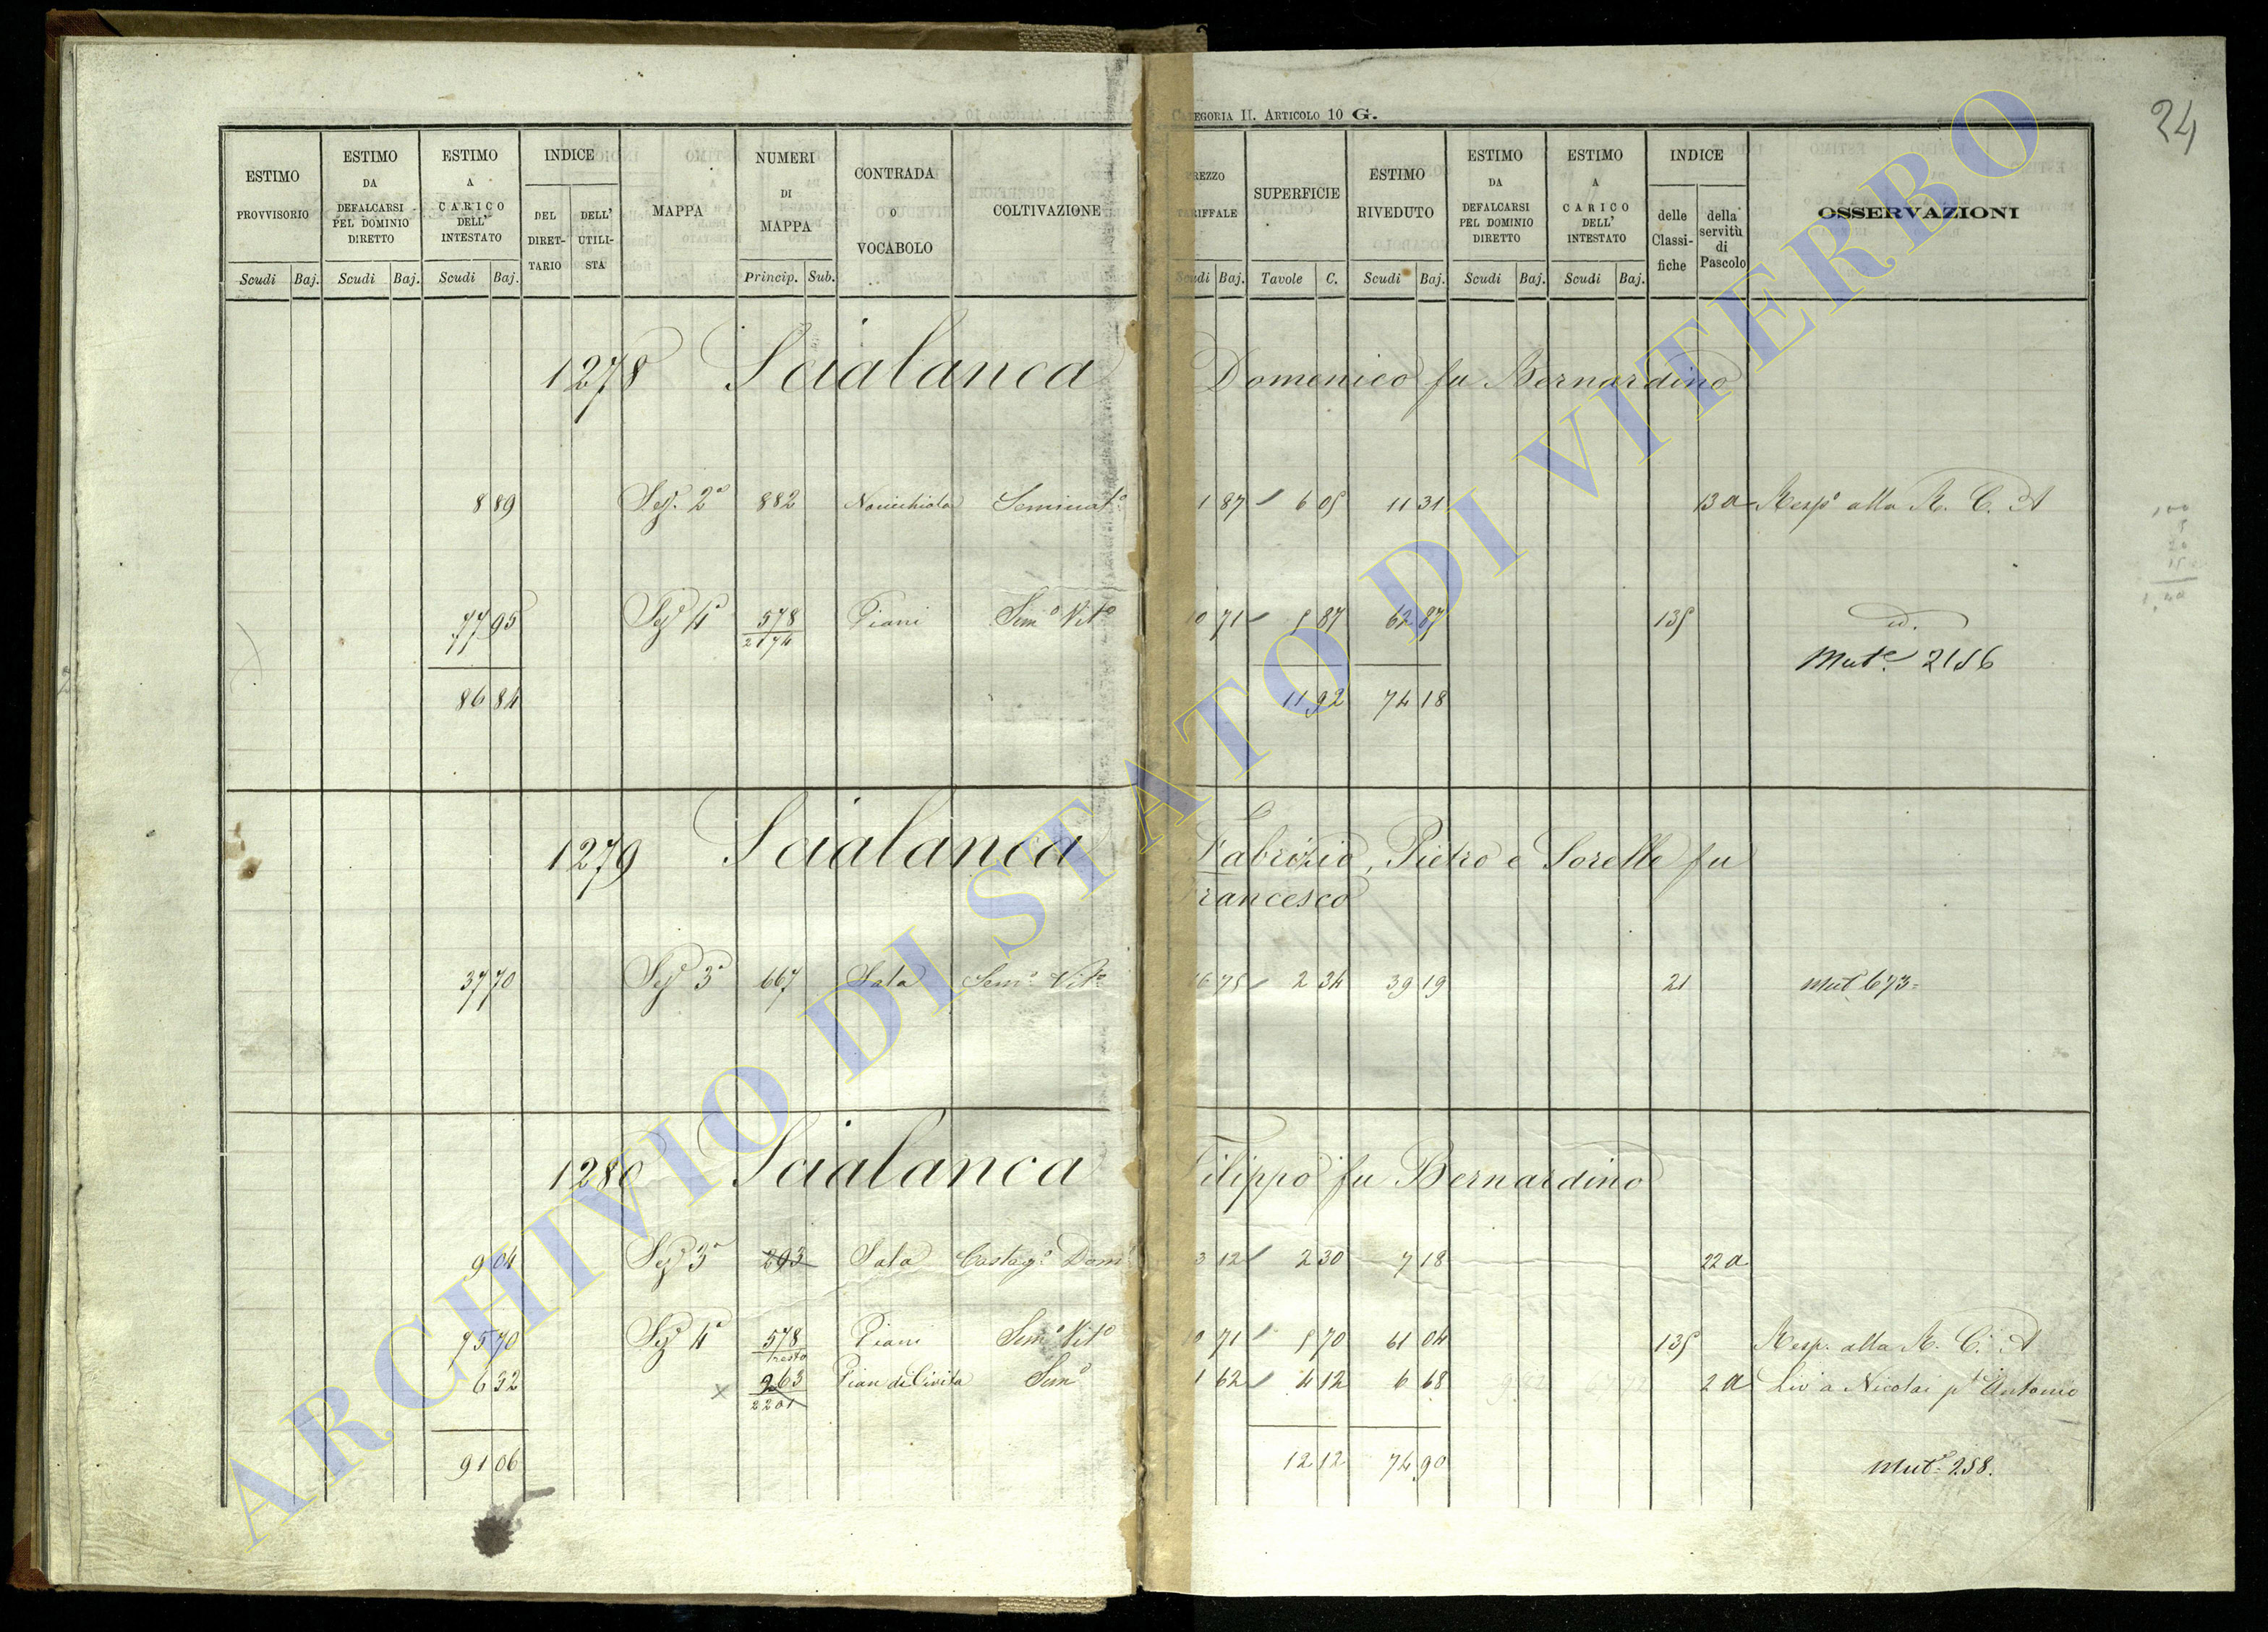 CATEGORIA II. ARTICOLO 10 G.
24
ESTIMO PROVVISORIO
ESTIMO DA DEFALCARSI PEL DOMINIO DIRETTO
ESTIMO A CARICO DELL' INTESTATO
INDICE
DEL DIRETTARIO
DELL' UTILISTA
MAPPA
NUMERI DI MAPPA
CONTRADA O VOCABOLO
COLTIVAZIONE
PREZZO TARIFFALE
SUPERFICIE
ESTIMO RIVEDUTO
ESTIMO DA DEFALCARSI PEL DOMINIO DIRETTO
ESTIMO A CARICO DELL' INTESTATO
INDICE
delle Classifiche
della servitù di Pascolo
OSSERVAZIONI
Scudi Baj. Scudi Baj. Scudi Baj. Princip. Sub. Scudi Baj. Tavole C. Scudi Baj. Scudi Baj. Scudi Baj.
1278 Scialanca Domenico fu Bernardino
8 89 Sez. 2a 882 Seminato 1 87 6 05 11 31 13 a Respo alla R. C. A
77 95 Seze 4a 578/2174 Piani Semo Vito 10 71 5 87 62 87 135 id.
Mute 2156
86 84 11 92 74 18
1279 Scialanca Fabrizio, Pietro e Sorelle fu
Francesco
37 70 Seze 3a 667 Sala Semo Vito 16 75 2 34 39 19 21 Mut 673
1280 Scialanca Filippo fu Bernardino
9 04 Seze 3a 293 Sala Castago Dom 3 12 2 30 7 18 22 a
75 70 Seze 4a 578/resto Piani Semo Vito 10 71 5 70 61 04 135 Resp. alla R. C. A
6 32 263/2201 Pian di Civita Semo 1 62 4 12 6 68 2 a Liv a Nicolai Antonio
91 06 12 12 74 90 Mute 258.
ARCHIVIO DI STATO DI VITERBO